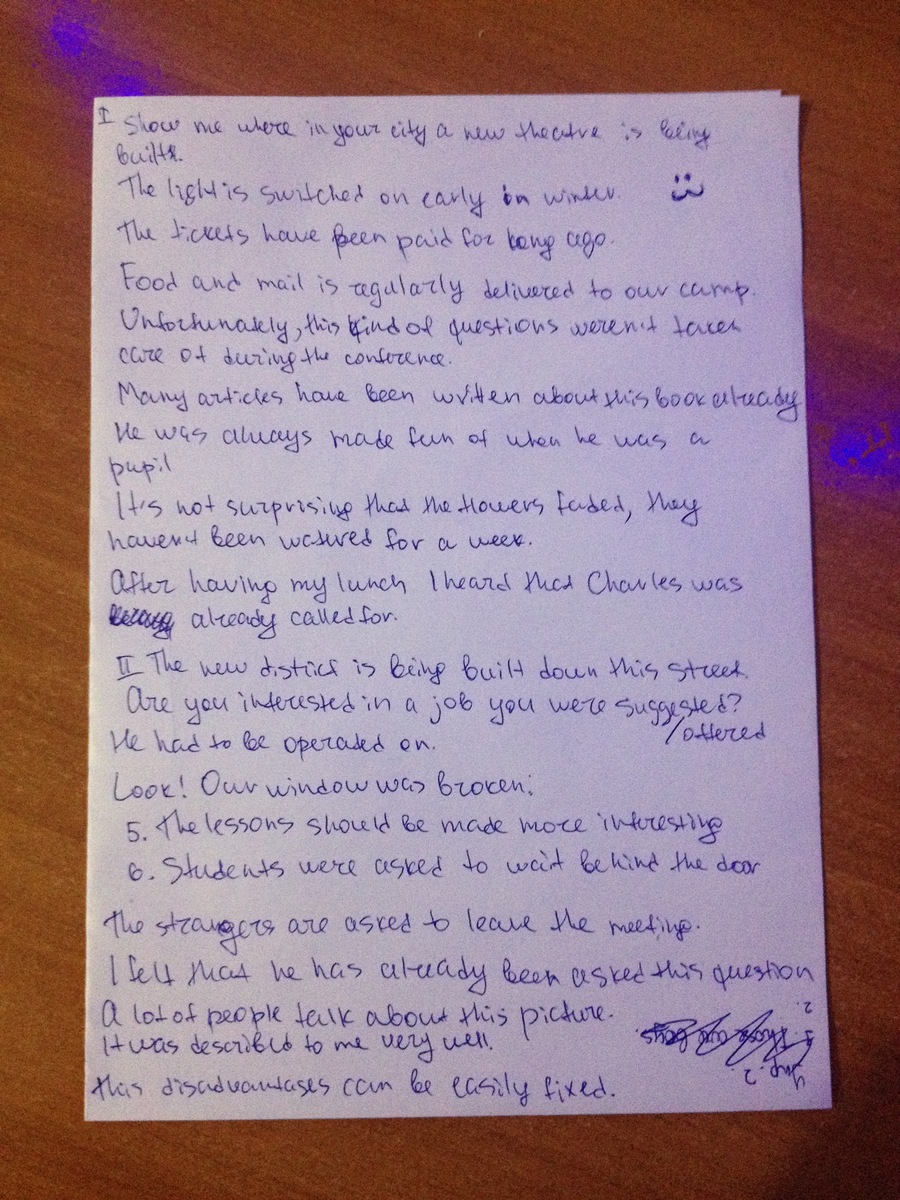 I Show me where in your city a new theatre is being
built.
The light is switched on early in winter.
The tickets have been paid for long ago.
Food and mail is regularly delivered to our camp.
Unfortunately, this kind of questions weren't taken
care of during the conference.
Many articles have been written about this book already
He was always made fun of when he was a
pupil
It's not surprising that the flowers faded, they
haven't been watured for a week.
After having my lunch I heard that Charles was
already called for.
II The new district is being built down this street.
Are you interested in a job you were suggested?
/offered
He had to be operated on.
Look! Our window was broken.
5. The lessons should be made more interesting
6. Students were asked to wait behind the door
The strangers are asked to leave the meeting.
I felt that he has already been asked this question
A lot of people talk about this picture.
It was described to me very well.
This disadvantages can be easily fixed.
Упр. 2